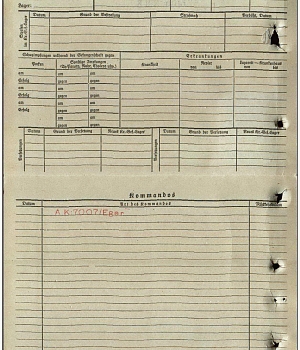 Lager:
Datum Grund der Bestrafung Strafmaß Verbüßt, Datum
Schutzimpfungen während der Gefangenschaft gegen Erkrankungen
Pocken Sonstige Impfungen Krankheit Revier
von bis von bis
am am am
Erfolg gegen gegen
am am am
Erfolg gegen gegen
am am am
Erfolg gegen gegen
Datum Grund der Versetzung Neues Kr.-Gef.-Lager Datum Grund der Versetzung Neues Kr.-Gef.-Lager
Versetzungen Versetzungen
Kommandos
Datum Art des Kommandos Rückkehrdatum
A.K. 7007/Eger.